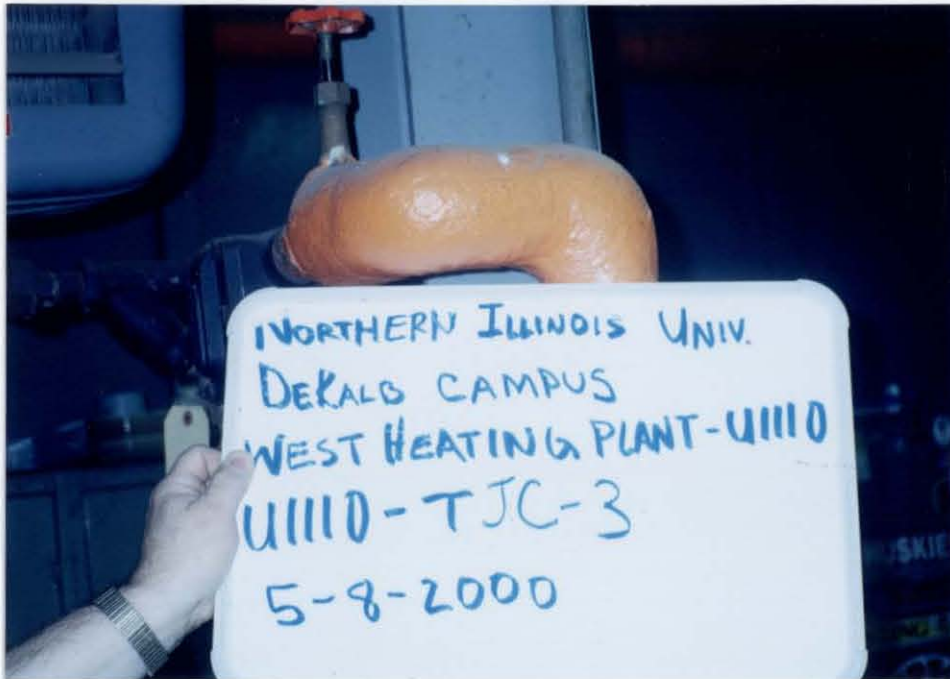 NORTHERN ILLINOIS UNIV.
DEKALB CAMPUS
WEST HEATING PLANT-U1110
U1110-TJC-3
5-8-2000